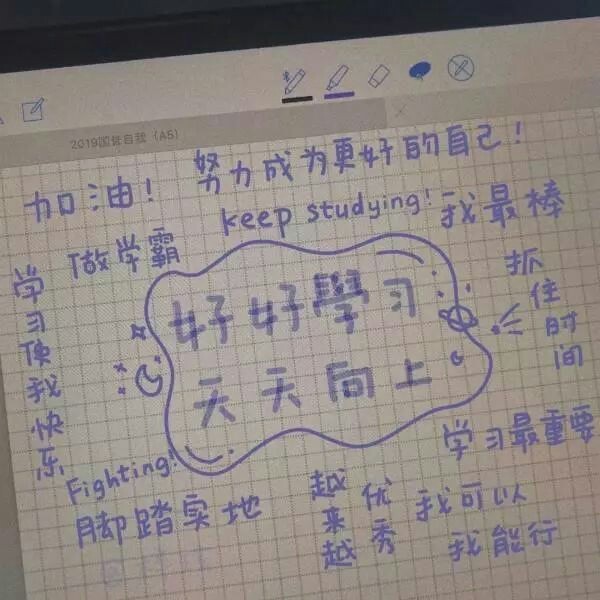 2019 自我（A5）
加油！
努力成为更好的自己！
keep studying!
我最棒
做学霸
学习使我快乐
好好學习
天天向上
抓住时间
Fighting!
脚踏实地
越来越优秀
学习最重要
我可以
我能行